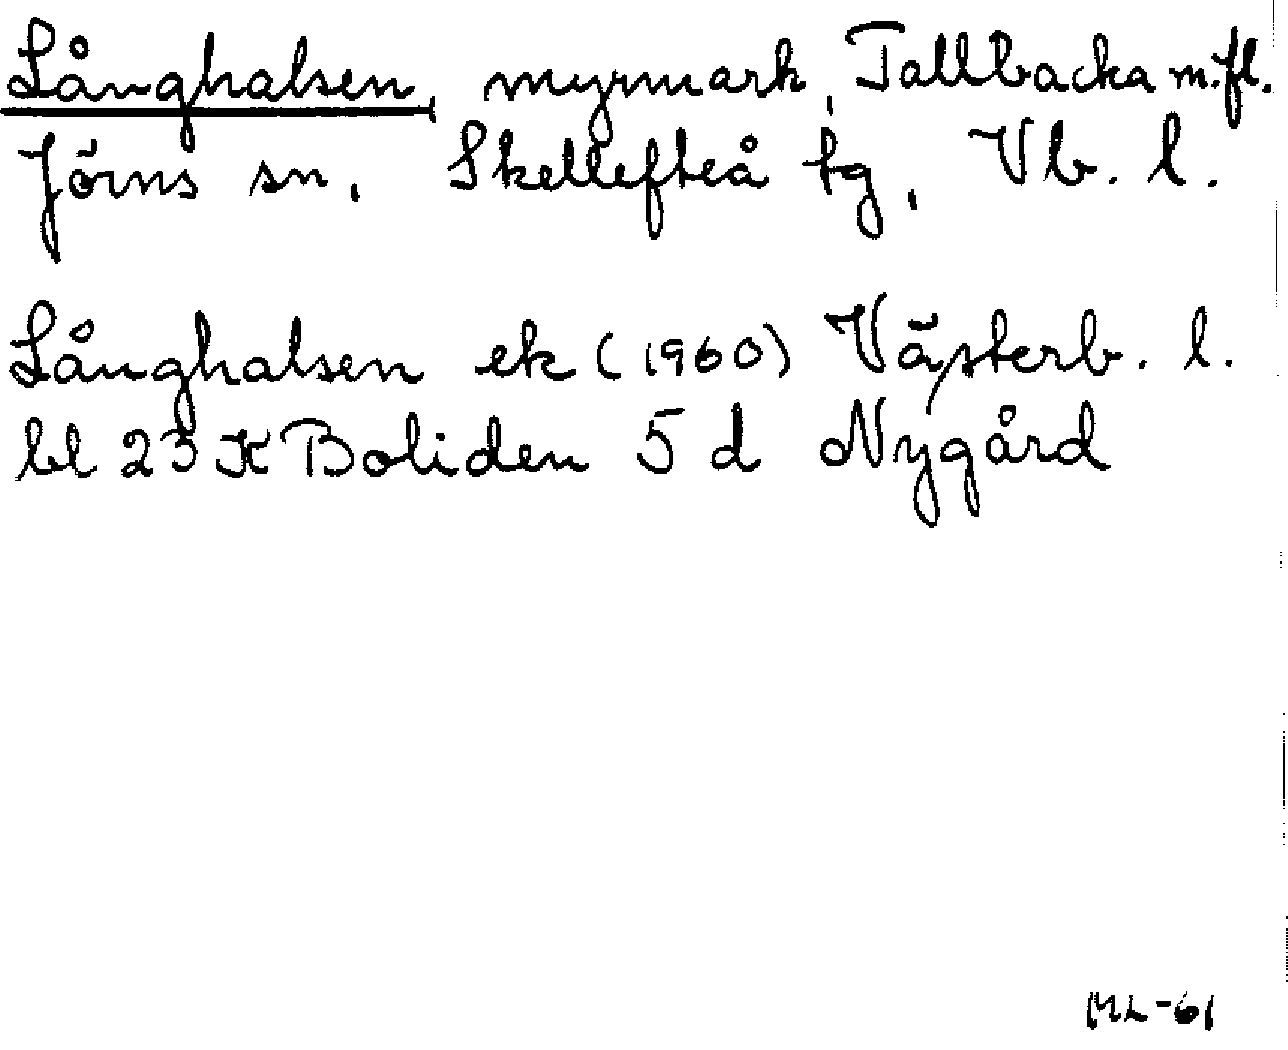 Långhalsen, myrmark, Tallbacka m.fl.
Jörns sn, Skellefteå tg, Vb. l.
Långhalsen ek (1960) Västerb. l.
bl 23 K Boliden 5 d Nygård
ML-61